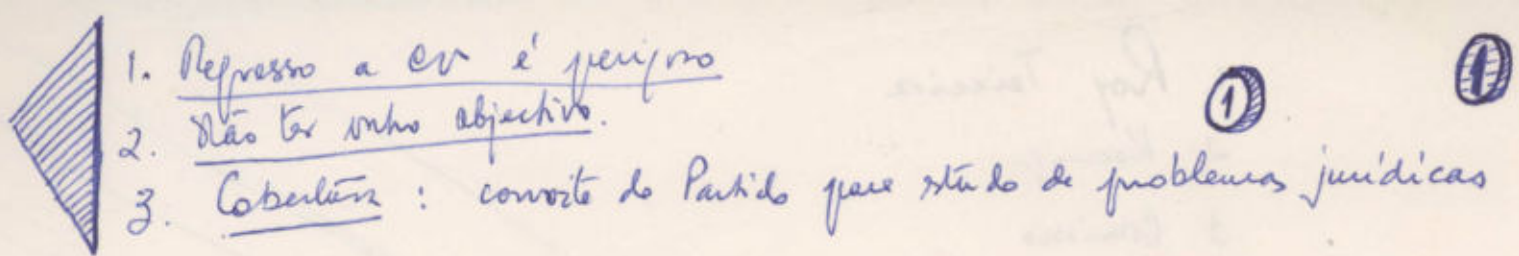 1. Regresso a CV é perigoso
2. Não ter outro objectivo.
3. Cobertura : convite do Partido para estudo de problemas jurídicos
1
1